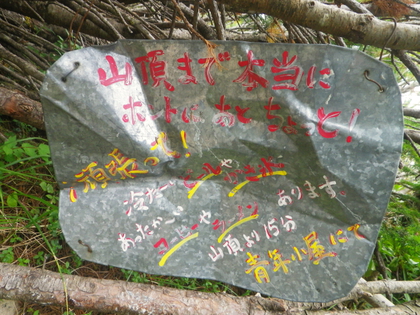 山頂まで本当に
ホントにあとちょっと!
頑張って!
冷た〜い ビールやお水
あったか〜い コーヒーやラーメン あります。
山頂より15分
青年小屋にて